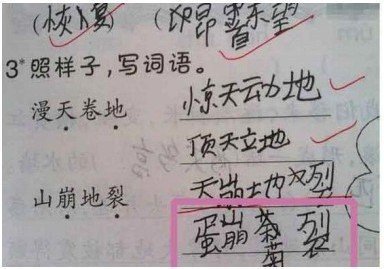 (恢复) (昂首东望)
3*照样子，写词语。
漫天卷地 惊天动地
顶天立地
山崩地裂 天崩地裂
蛋崩菊裂